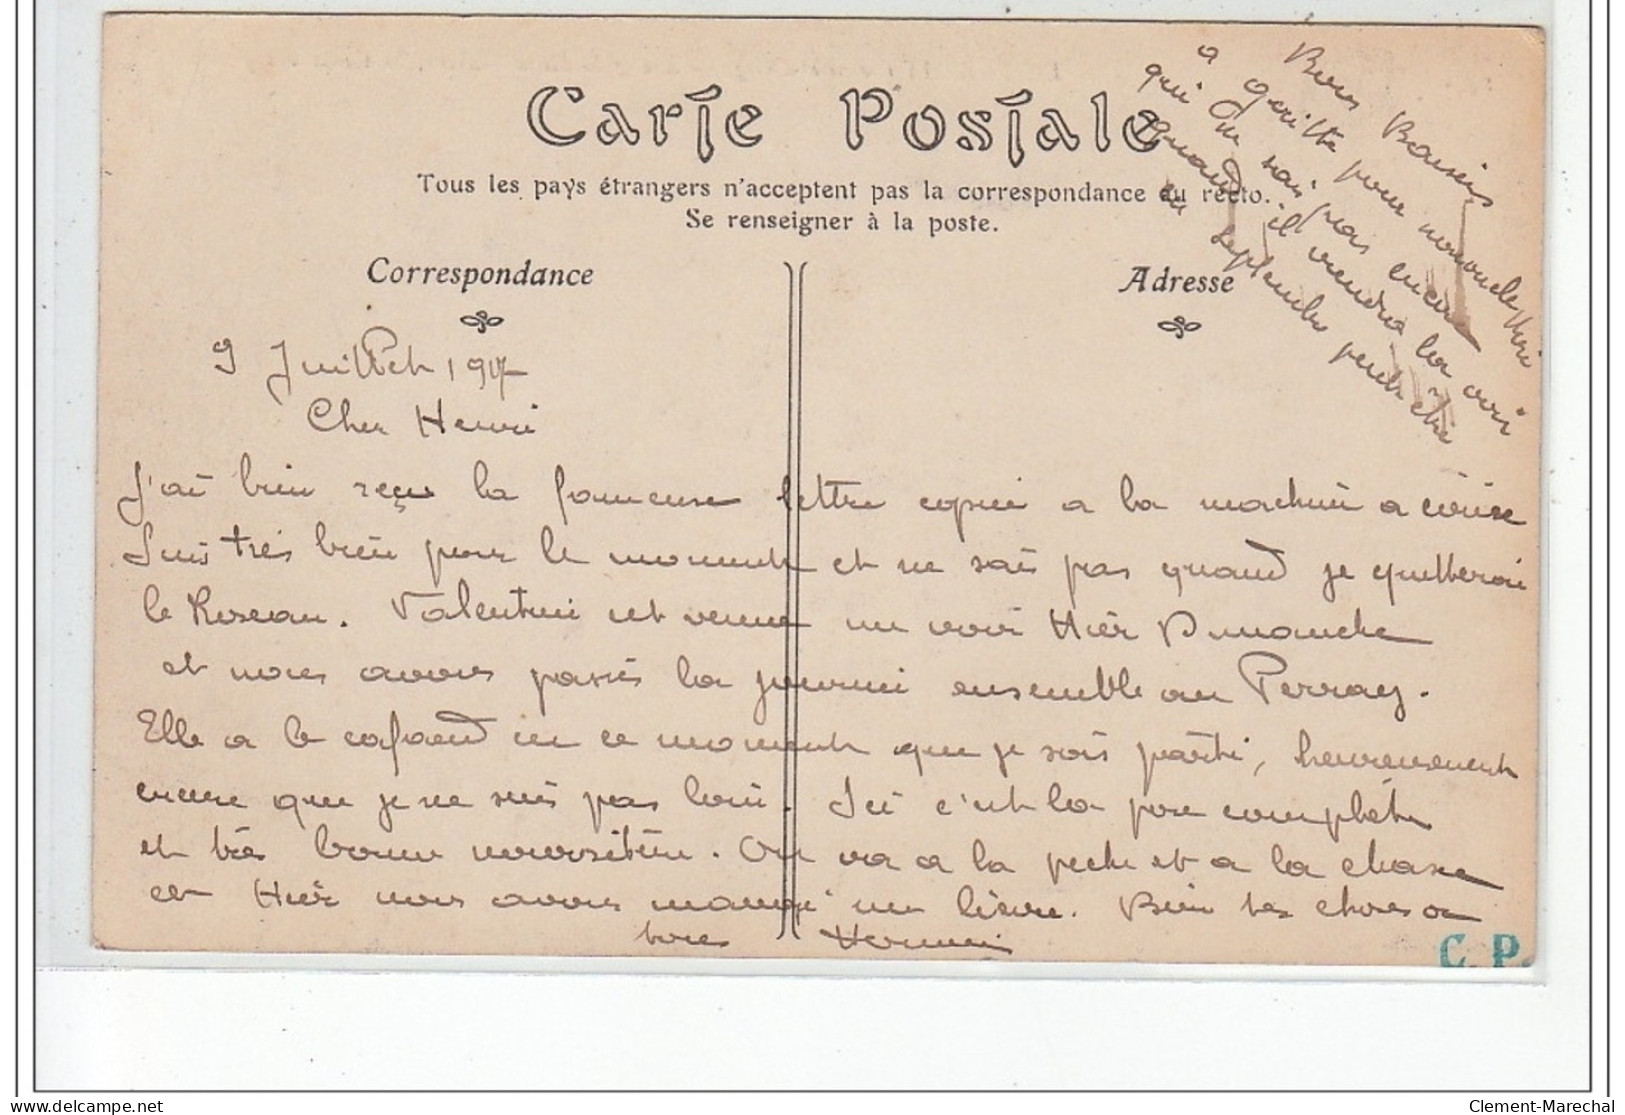 Carte Postale
Tous les pays étrangers n'acceptent pas la correspondance au recto.
Se renseigner à la poste.
Correspondance
Adresse
Bons Baisers
a pour
qui sais pas encore
quand il viendra la voir
en septembre peut être
9 Juillet 1917
Cher Henri
J'ai bien reçu la fameuse lettre copiée a la machine a écrire
Suis très bien pour le moment et ne sais pas quand je quitterai
le Réseau. Valentine est venue me voir Hier Dimanche
et nous avons passés la journée ensemble au Perray.
Elle a le cafard en ce moment que je sois parti, heureusement
encore que je ne suis pas loin. Ici c'est la paix complète
et très bonne nourriture. On va a la peche et a la chasse
et Hier nous avons mangé un lièvre. Bien des choses a
tous
C. P.
Clement-Marechal